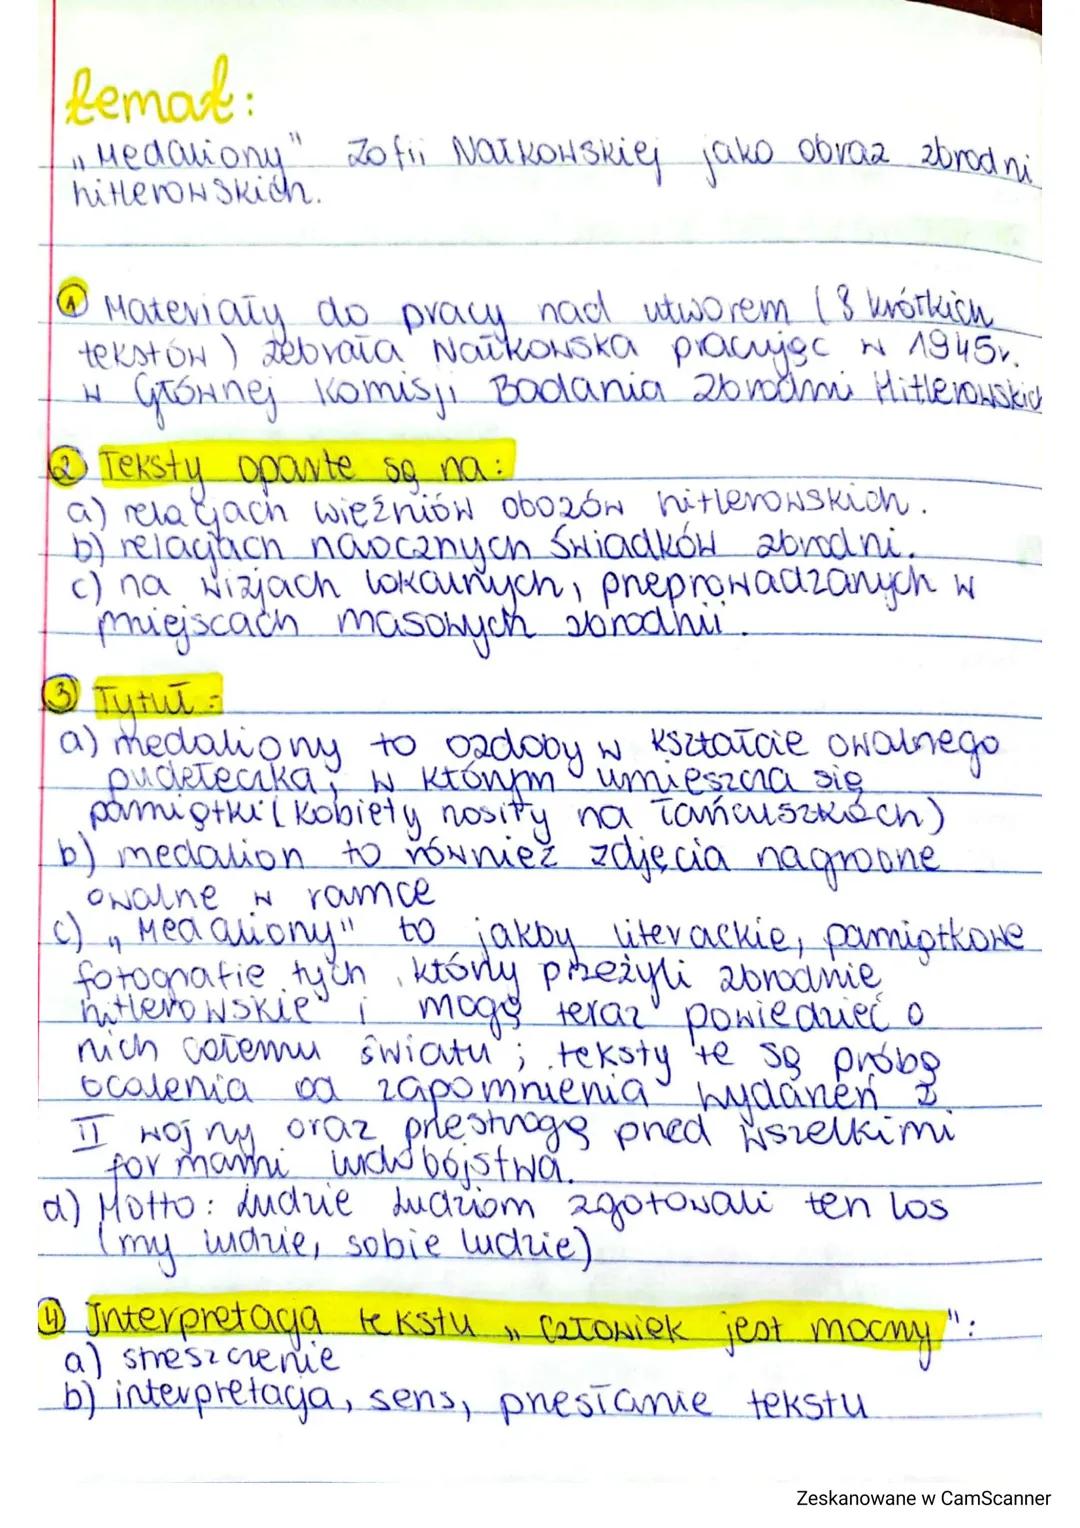 temat:
„Medaliony" Zofii Nałkowskiej jako obraz zbrodni
hitlerowskich.
1 Materiały do pracy nad utworem (8 krótkich
tekstów) zebrała Nałkowska pracując w 1945r.
w Głównej Komisji Badania Zbrodni Hitlerowskich
2 Teksty oparte są na:
a) relacjach więźniów obozów hitlerowskich.
b) relacjach naocznych świadków zbrodni.
c) na wizjach lokalnych, przeprowadzanych w
miejscach masowych zbrodnii.
3 Tytuł:
a) medaliony to ozdoby w kształcie owalnego
pudełeczka, w którym umieszcza się
pamiątki (kobiety nosiły na łańcuszkach)
b) medalion to również zdjęcia nagrobne
owalne w ramce
c) „Medaliony" to jakby literackie, pamiątkowe
fotografie tych, którzy przeżyli zbrodnie
hitlerowskie i mogą teraz powiedzieć o
nich całemu światu; teksty te są próbą
ocalenia od zapomnienia wydarzeń z
II wojny oraz przestrogą przed wszelkimi
formami ludobójstwa.
d) Motto: Ludzie ludziom zgotowali ten los
(my ludzie, sobie ludzie)
4 Interpretacja tekstu „Człowiek jest mocny":
a) streszczenie
b) interpretacja, sens, przesłanie tekstu
Zeskanowane w CamScanner